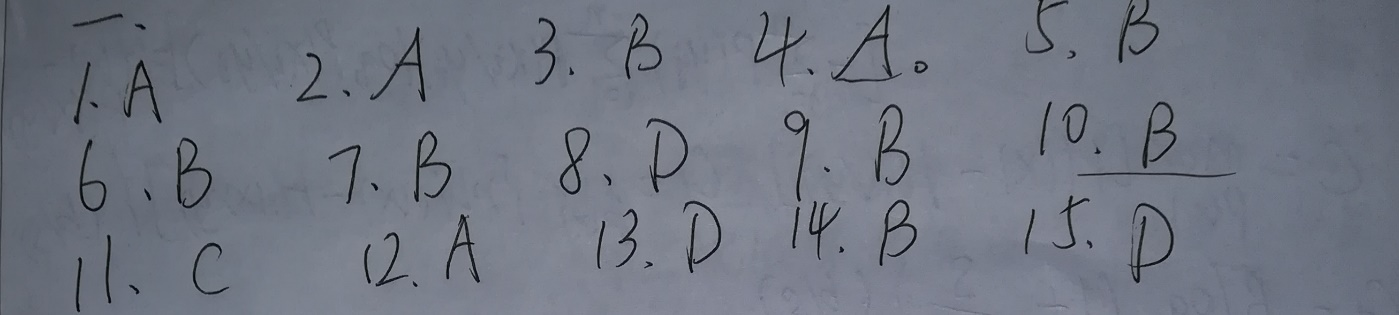 一.
1. A 2. A 3. B 4. A。 5. B
6、B 7. B 8、D 9. B 10. B
11、C 12. A 13. D 14. B 15. D